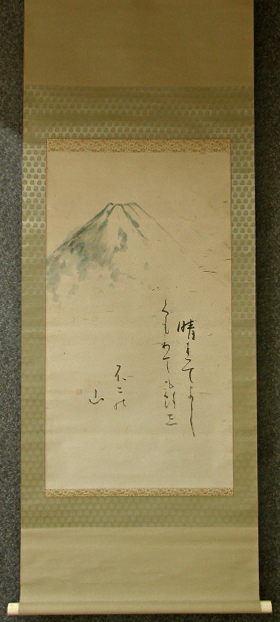 晴れてよし
くもりても
不二の
山